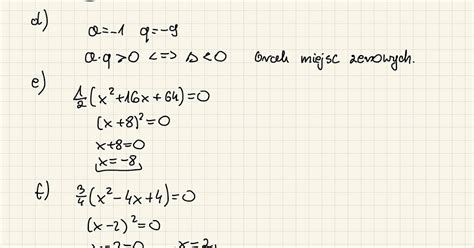 d)
a=-1 q=-9
a·q>0 <=> Δ<0 Brak miejsc zerowych.
e)
1/2(x²+16x+64)=0
(x+8)²=0
x+8=0
x=-8
f)
3/4(x²-4x+4)=0
(x-2)²=0
x-2=0 x=2